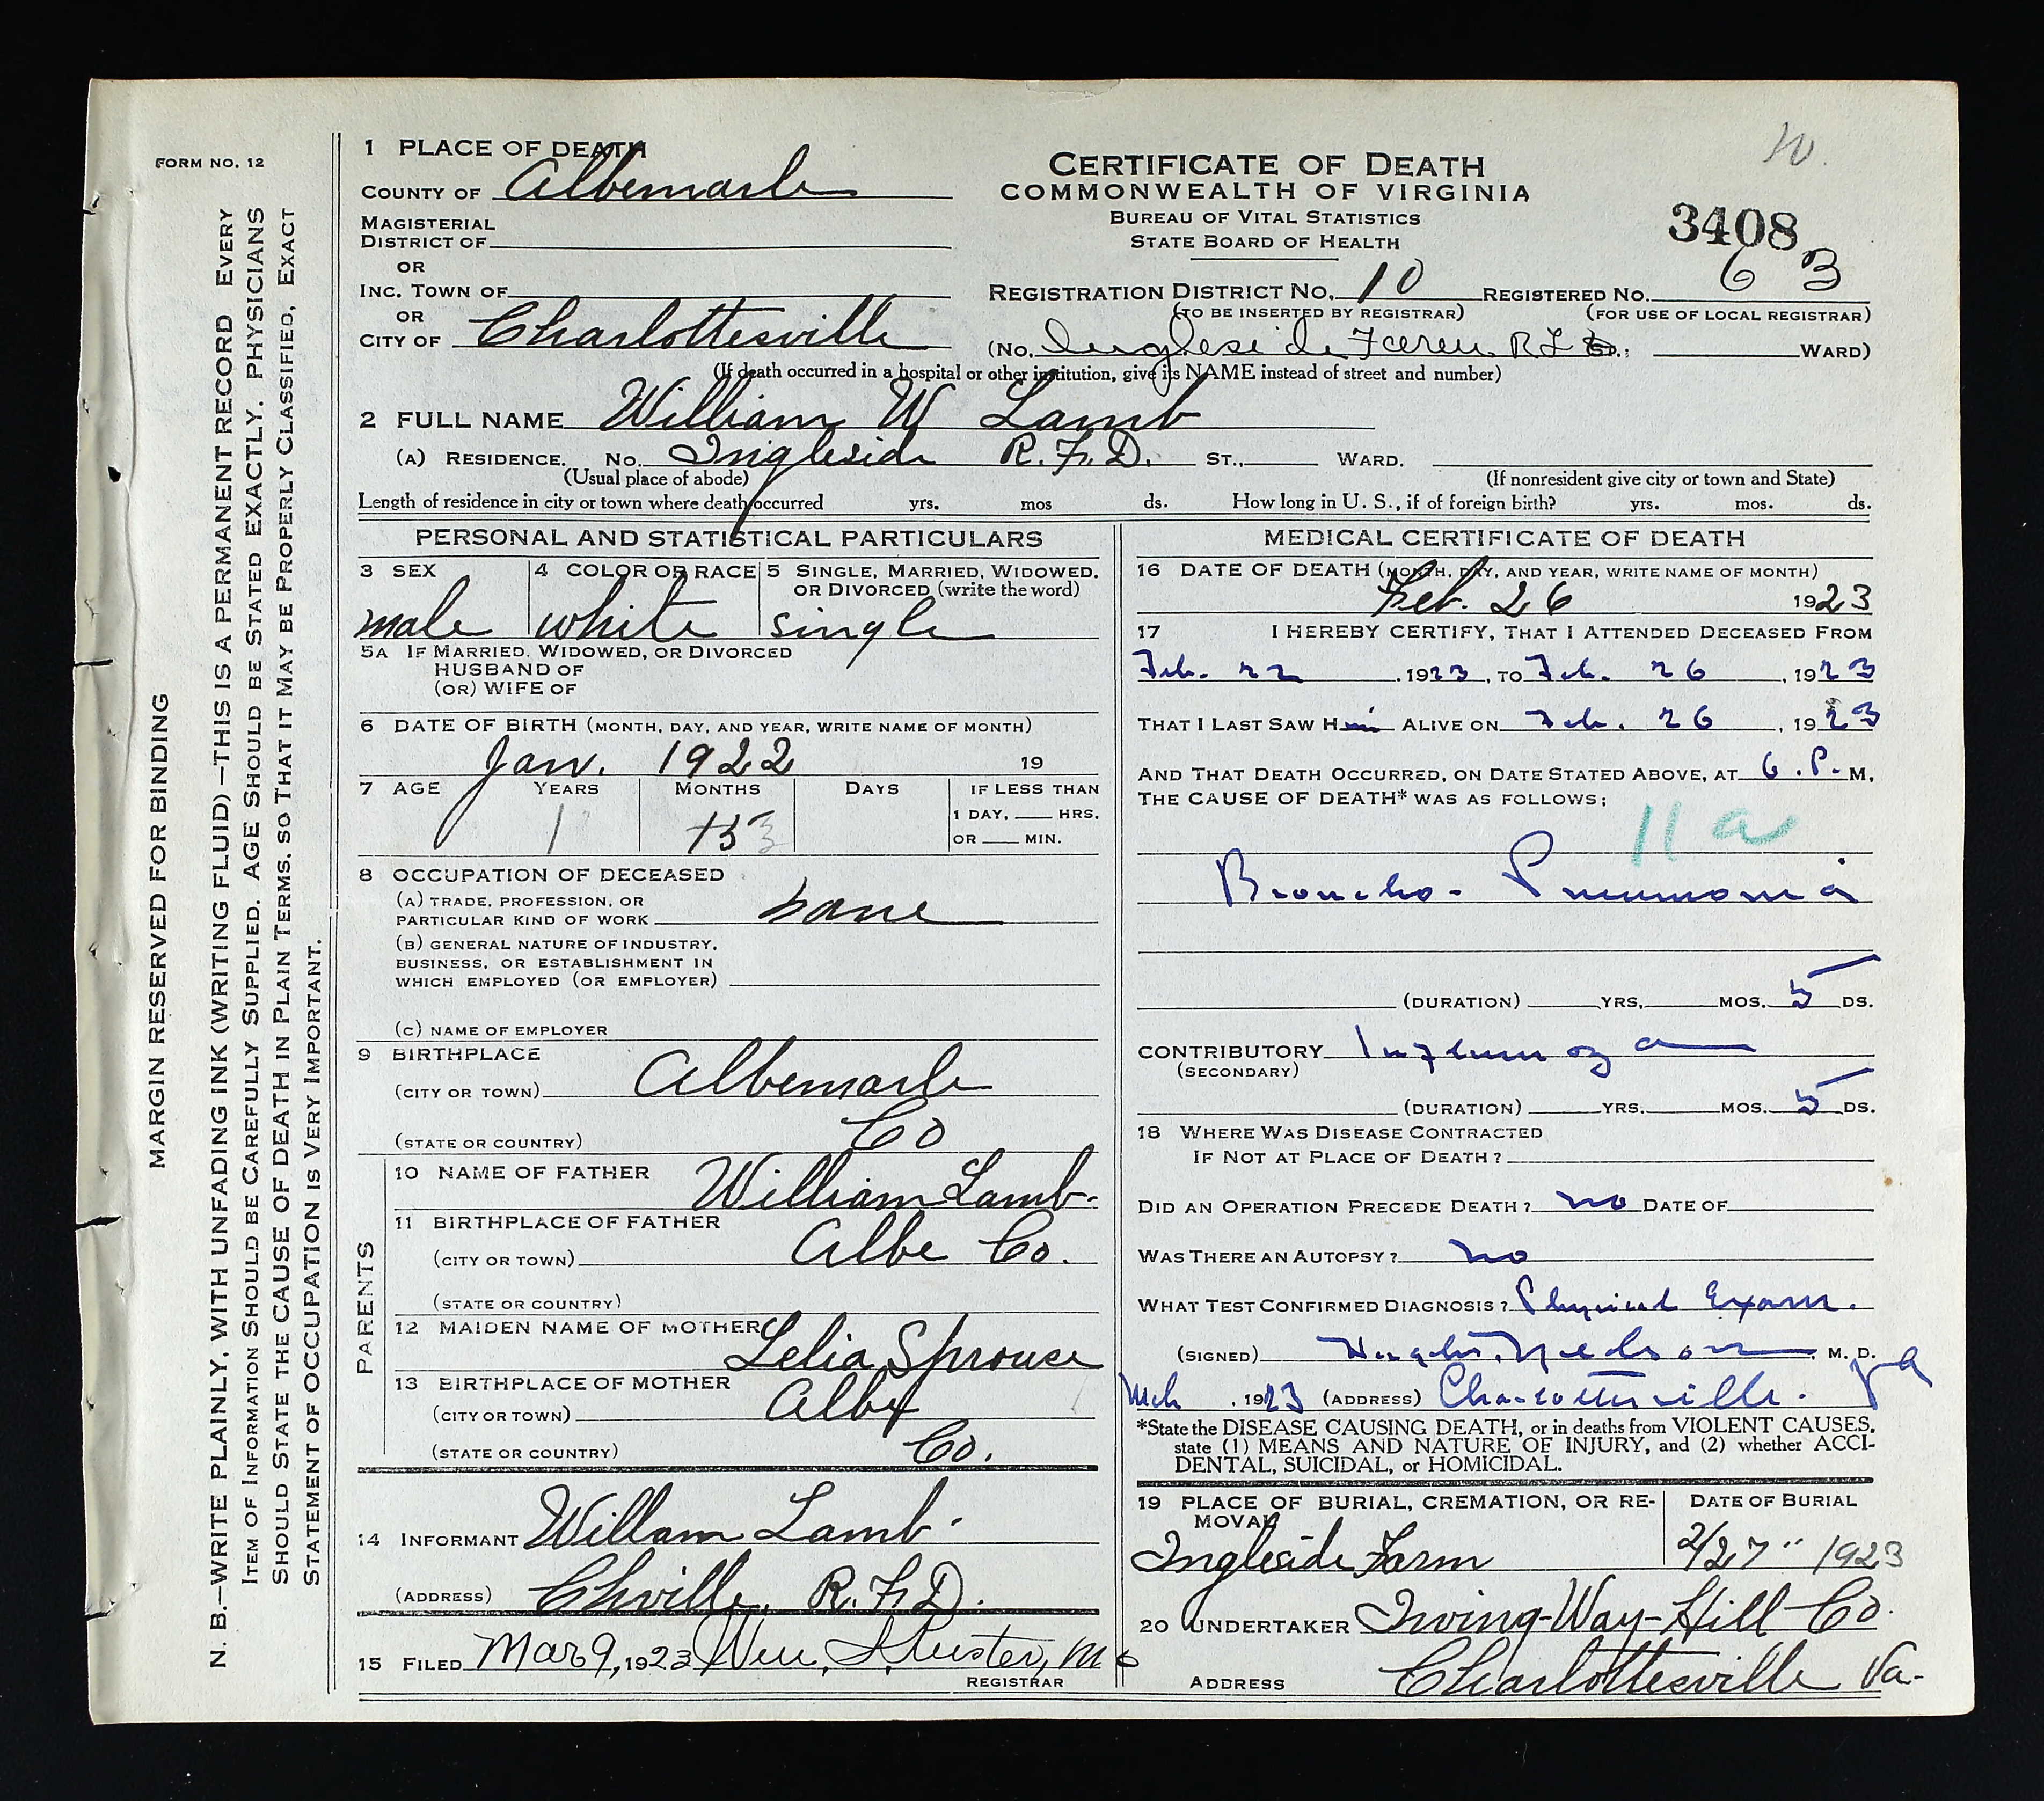 FORM NO. 12
MARGIN RESERVED FOR BINDING
N. B.—WRITE PLAINLY, WITH UNFADING INK (WRITING FLUID)—THIS IS A PERMANENT RECORD EVERY
ITEM OF INFORMATION SHOULD BE CAREFULLY SUPPLIED. AGE SHOULD BE STATED EXACTLY. PHYSICIANS
SHOULD STATE THE CAUSE OF DEATH IN PLAIN TERMS, SO THAT IT MAY BE PROPERLY CLASSIFIED, EXACT
STATEMENT OF OCCUPATION IS VERY IMPORTANT.
1 PLACE OF DEATH
COUNTY OF Albemarle
MAGISTERIAL
DISTRICT OF
OR
INC. TOWN OF
OR
CITY OF Charlottesville
CERTIFICATE OF DEATH
COMMONWEALTH OF VIRGINIA
BUREAU OF VITAL STATISTICS
STATE BOARD OF HEALTH
3408
REGISTRATION DISTRICT NO. 10 REGISTERED NO. 63
(TO BE INSERTED BY REGISTRAR) (FOR USE OF LOCAL REGISTRAR)
(No. Ingleside Farm WARD)
(If death occurred in a hospital or other institution, give its NAME instead of street and number)
2 FULL NAME William W Lamb
(A) RESIDENCE. No. Ingleside R.F.D. ST., WARD.
(Usual place of abode) (If nonresident give city or town and State)
Length of residence in city or town where death occurred yrs. mos ds. How long in U. S., if of foreign birth? yrs. mos. ds.
PERSONAL AND STATISTICAL PARTICULARS
3 SEX 4 COLOR OR RACE 5 SINGLE, MARRIED, WIDOWED,
OR DIVORCED (write the word)
male white single
5A IF MARRIED, WIDOWED, OR DIVORCED
HUSBAND OF
(OR) WIFE OF
6 DATE OF BIRTH (MONTH, DAY, AND YEAR, WRITE NAME OF MONTH)
Jan. 1922 19
7 AGE YEARS MONTHS DAYS IF LESS THAN
1 DAY, HRS.
OR MIN.
1
8 OCCUPATION OF DECEASED
(A) TRADE, PROFESSION, OR
PARTICULAR KIND OF WORK none
(B) GENERAL NATURE OF INDUSTRY,
BUSINESS, OR ESTABLISHMENT IN
WHICH EMPLOYED (OR EMPLOYER)
(C) NAME OF EMPLOYER
9 BIRTHPLACE
(CITY OR TOWN) Albemarle
(STATE OR COUNTRY) Co
PARENTS
10 NAME OF FATHER William Lamb.
11 BIRTHPLACE OF FATHER
(CITY OR TOWN) Albe Co.
(STATE OR COUNTRY)
12 MAIDEN NAME OF MOTHER Lelia Sprouse
13 BIRTHPLACE OF MOTHER
(CITY OR TOWN) Albe
(STATE OR COUNTRY) Co.
14 INFORMANT Willam Lamb.
(ADDRESS) Chville. R.F.D.
15 FILED Mar 9, 1923
REGISTRAR
MEDICAL CERTIFICATE OF DEATH
16 DATE OF DEATH (MONTH, DAY, AND YEAR, WRITE NAME OF MONTH)
Feb. 26 1923
17 I HEREBY CERTIFY, THAT I ATTENDED DECEASED FROM
Feb. 22, 1923, TO Feb. 26, 1923
THAT I LAST SAW Him ALIVE ON Feb. 26, 1923
AND THAT DEATH OCCURRED, ON DATE STATED ABOVE, AT 6.P. M.
THE CAUSE OF DEATH* WAS AS FOLLOWS:
11a
Broncho-Pneumonia
(DURATION) YRS. MOS. 5 DS.
CONTRIBUTORY Influenza
(SECONDARY)
(DURATION) YRS. MOS. 5 DS.
18 WHERE WAS DISEASE CONTRACTED
IF NOT AT PLACE OF DEATH?
DID AN OPERATION PRECEDE DEATH? no DATE OF
WAS THERE AN AUTOPSY? no
WHAT TEST CONFIRMED DIAGNOSIS? Physical Exam.
(SIGNED) M. D.
Mch, 1923 (ADDRESS) Charlottesville. Va
*State the DISEASE CAUSING DEATH, or in deaths from VIOLENT CAUSES,
state (1) MEANS AND NATURE OF INJURY, and (2) whether ACCI-
DENTAL, SUICIDAL, or HOMICIDAL.
19 PLACE OF BURIAL, CREMATION, OR RE- DATE OF BURIAL
MOVAL
Ingleside Farm 2/27" 1923
20 UNDERTAKER Irving-Way-Hill Co.
ADDRESS Charlottesville Va.